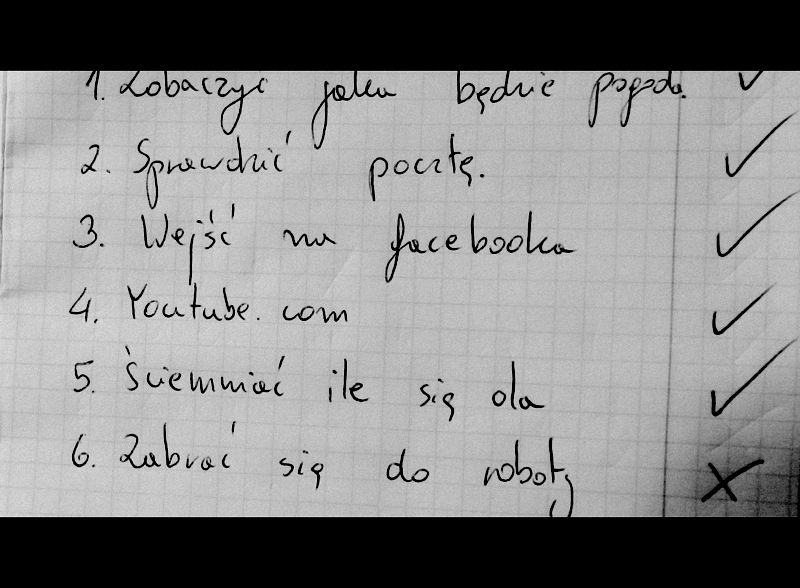 1. Zobaczyć jaka będzie pogoda.
2. Sprawdzić pocztę.
3. Wejść na facebooka
4. Youtube.com
5. Ściemniać ile się da
6. Zabrać się do roboty